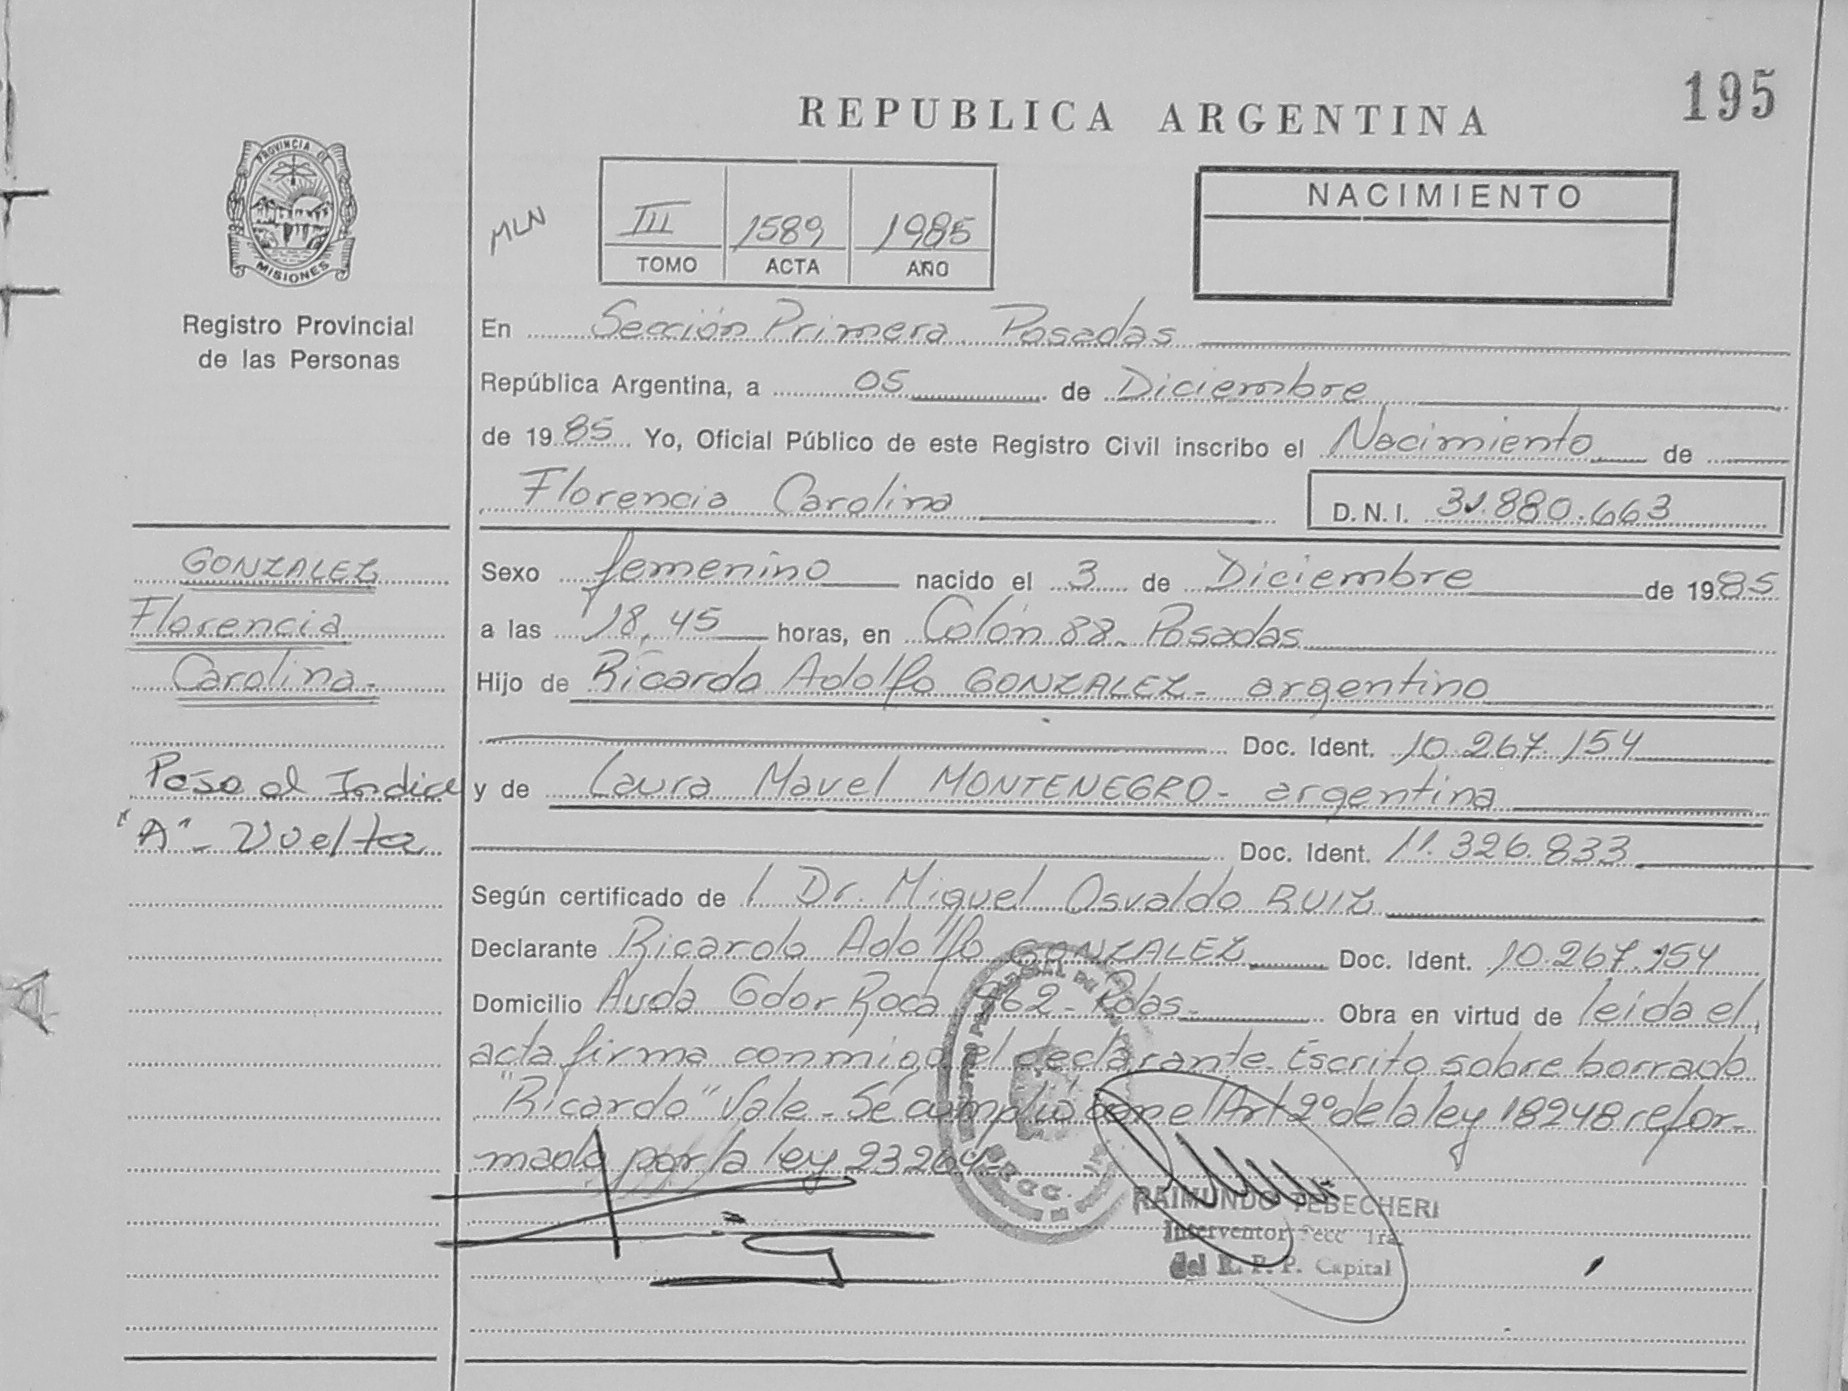 195
REPUBLICA ARGENTINA
PROVINCIA DE
MISIONES
Registro Provincial
de las Personas
MLN
III 1589 1985
TOMO ACTA AÑO
NACIMIENTO
En Sección Primera Posadas
República Argentina, a 05 de Diciembre
de 1985 Yo, Oficial Público de este Registro Civil inscribo el Nacimiento de
Florencia Carolina D.N.I. 31.880.663
GONZALEZ
Florencia
Carolina-
Paso al Indice
"A"- Vuelta
Sexo femenino nacido el 3 de Diciembre de 1985
a las 18,45 horas, en Colón 88- Posadas
Hijo de Ricardo Adolfo GONZALEZ- argentino
Doc. Ident. 10.267.154
y de Laura Mavel MONTENEGRO- argentina
Doc. Ident. 11.326.833
Según certificado de l Dr. Miguel Osvaldo RUIZ
Declarante Ricardo Adolfo GONZALEZ Doc. Ident. 10.267.154
Domicilio Avda Gdor Roca 962- Pdas- Obra en virtud de leida el
acta firma conmigo el declarante- Escrito sobre borrado
"Ricardo" Vale- Se cumplió con el Art 2º de la ley 18248 refor-
mado por la ley 23264-
RAIMUNDO TEBECHERI
Interventor Secc 1ra.
del R. P. P. Capital